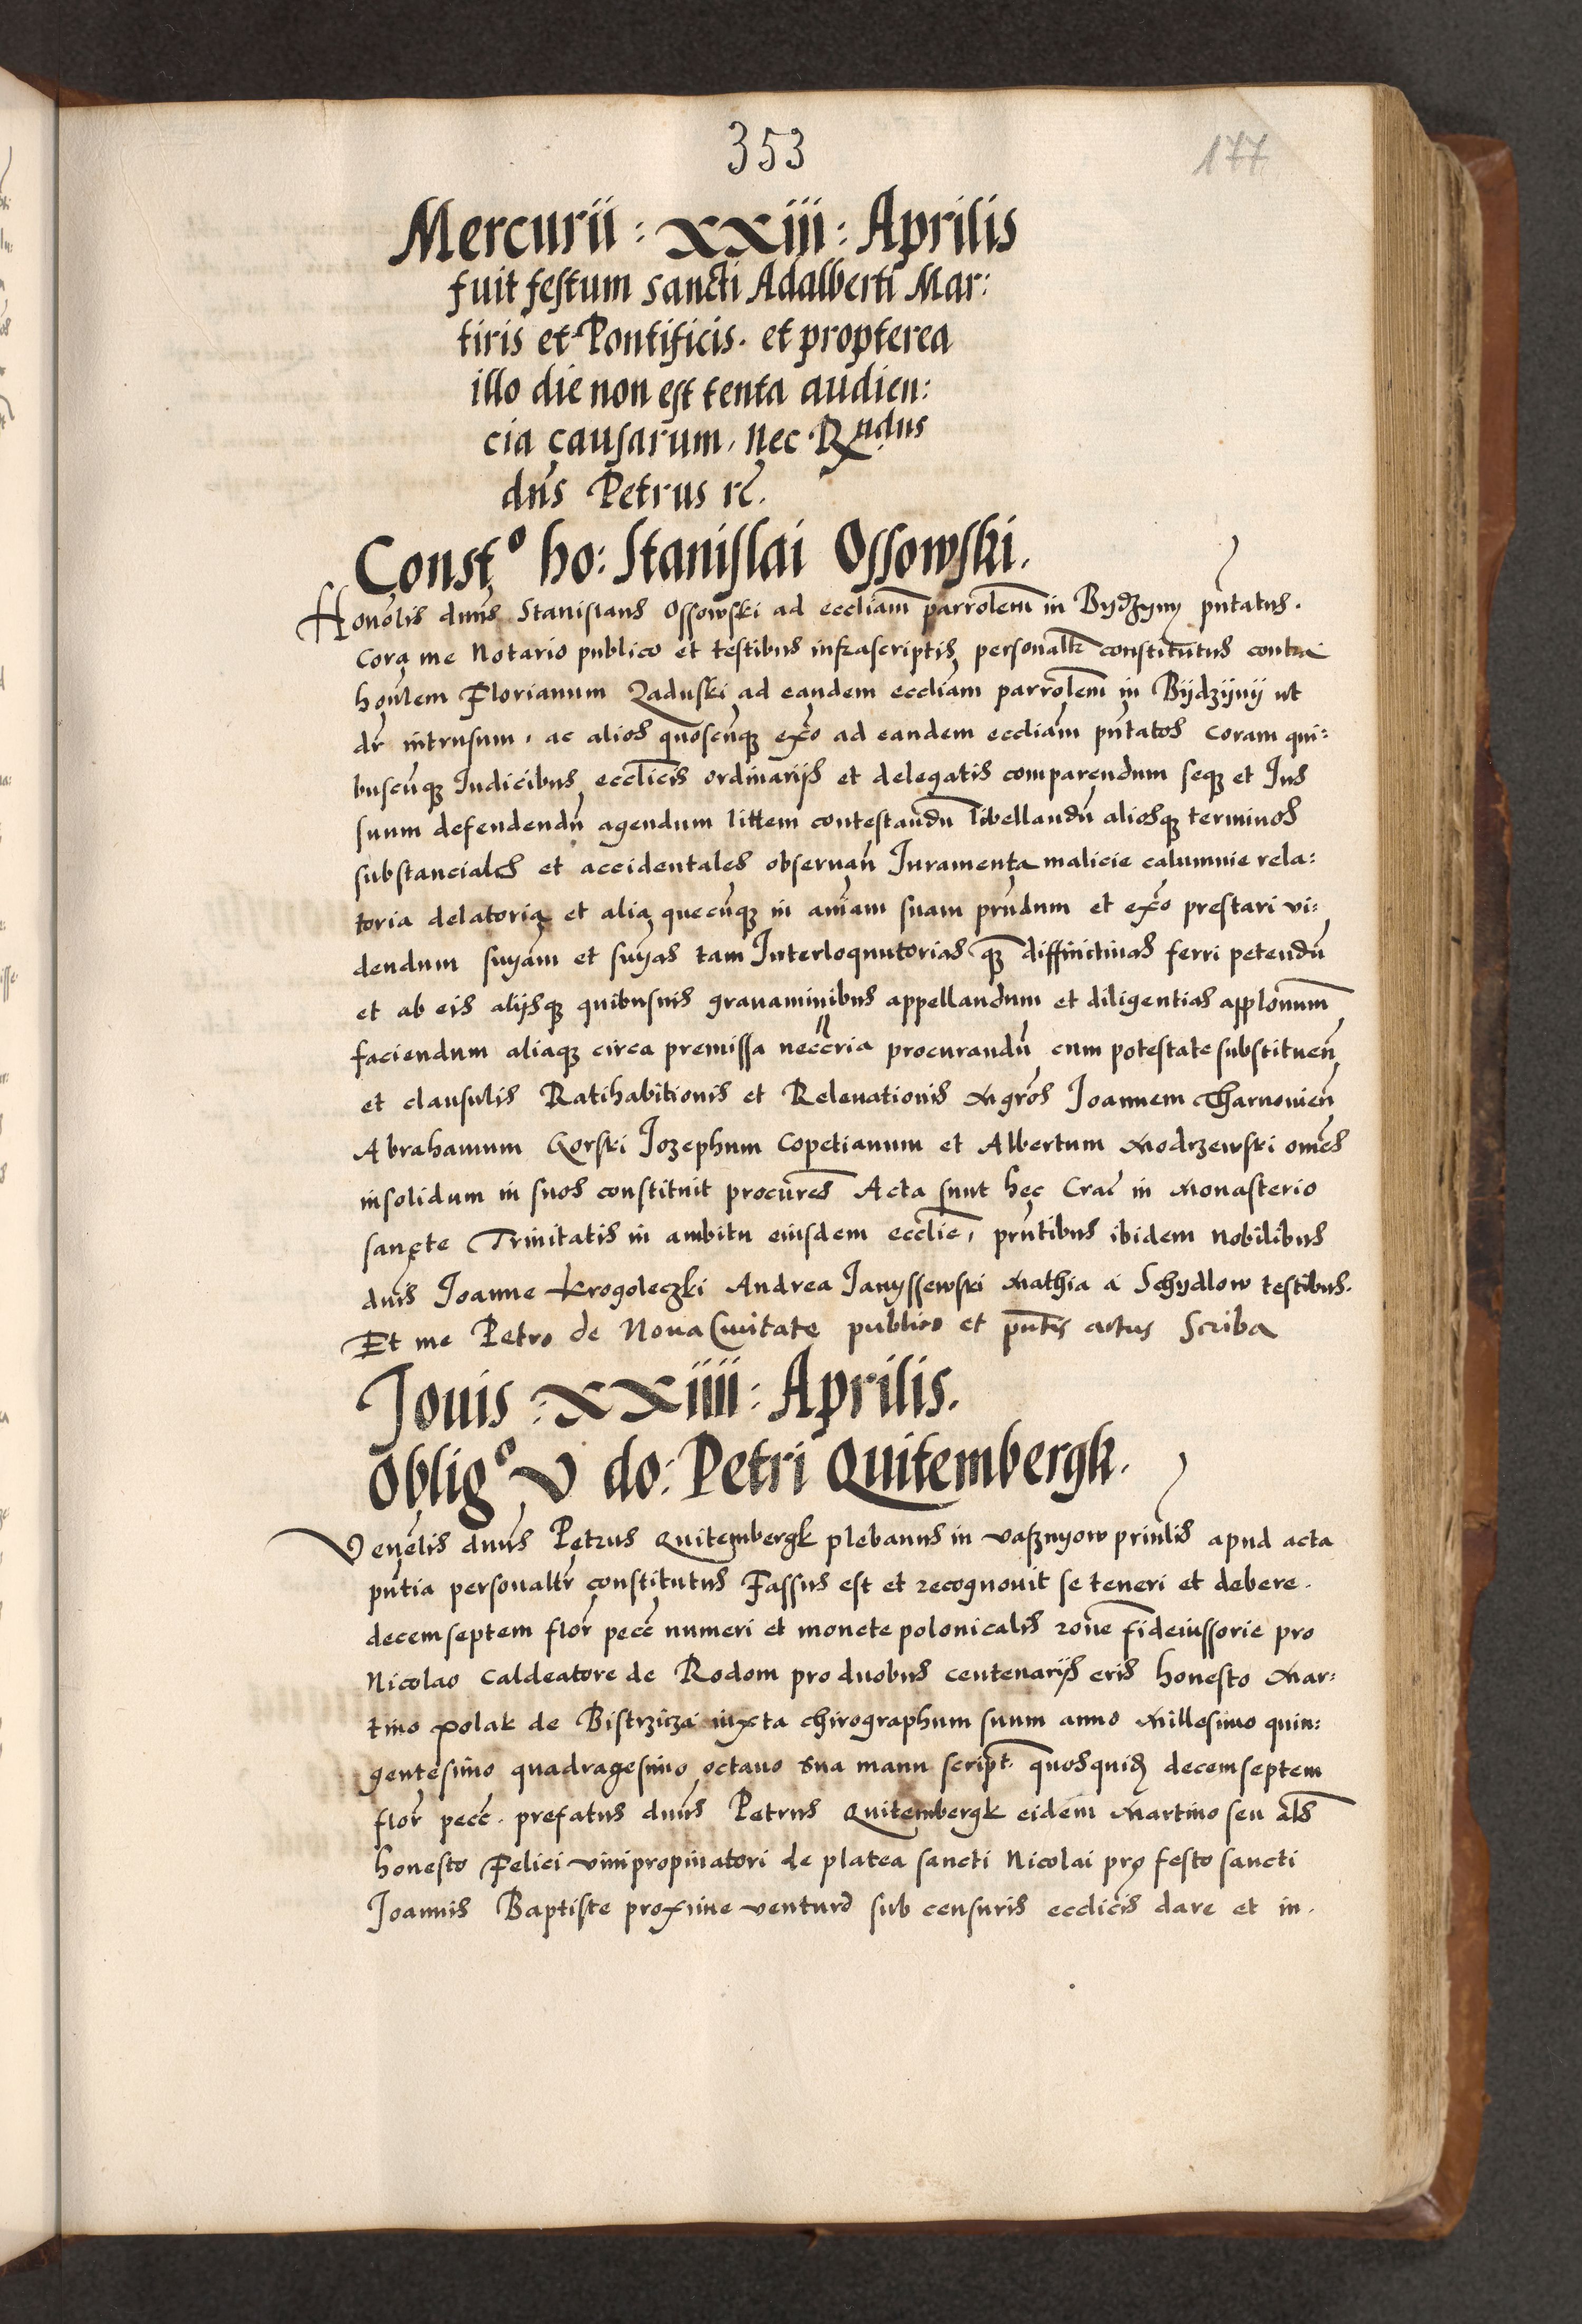 353
177
Mercurii : xxiii : Aprilis
fuit festum sancti Adalberti Mar:
tiris et Pontificis. et propterea
illo die non est tenta audien:
cia causarum, nec R̃ndus
dns̃ Petrus rc̃.
Constº ho: Stanislai Ossowski.
Honõlis dnũs Stanislaus Ossowski ad eccliam̃ parrolem̃ in Bydzyny pñtatus.
Corã me Notario publico et testibus infrascriptis personaltr̃ constitutus contra
honũlem Florianum Zaduski ad eandem eccliam̃ parrolem̃ in Bijdzijnij ut
dr̃ intrusum, ac alios quoscũqꝫ exõ ad eandem eccliam̃ pñtatos coram qui:
buscũqꝫ Iudicibus ecclicis̃ ordinarijs et delegatis comparendum seqꝫ et Ius
suum defendendũ agendum littem contestandũ libellandũ aliosqꝫ terminos
substanciales et accidentales obseruañ Iuramenta malicie calumnie rela:
toria delatoria et alia quecũqꝫ in aniãm suam prñdum et exõ prestari vi:
dendum snyãm et snỹas tam Interloqutorias qꝫ̃ diffinitiuas ferri petendũ
et ab eis alijsqꝫ quibusuis grauaminibus appellandum et diligentias applonum̃
faciendum aliaqꝫ circa premissa neccr̃ia procurandũ cum potestate substitueñ
et clausulis Ratihabitionis et Releuationis Mgrõs Joannem Tharnouieñ
Abrahamum Gorski Jozephum Copetianum et Albertum Modrzewski omẽs
insolidum in suos constituit procurẽs Acta sunt hec Crac̃ in Monasterio
sancte Trinitatis in ambitu eiusdem ecclie̋, prñtibus ibidem nobilibus
dnĩs Joanne Krogoleczki Andrea Janyssewski Mathia a Schydlow testibus.
Et me Petro de Noua Ciuitate publico et pñtis actus Scriba
Jouis : xxiiii : Aprilis.
Obligº V do: Petri Quitembergk.
Venẽlis dnũs Petrus Quitembergk plebanus in Vasznyow prinlĩs apud acta
pñtia personaltr̃ constitutus Fassus est et recognouit se teneri et debere.
decemseptem flor̃ pecc̃ numeri et monete polonicalis rone̋ fideiussorie pro
Nicolao Caldeatore de Rodom pro duobus centenarijs eris honesto Mar:
tino Polak de Bistrzicza iuxta chirographum suum anno Millesimo quin:
gentesimo quadragesimo octauo sua manu script. quosquiꝫ decemseptem
flor̃ pecc̃. prefatus dnũs Petrus Quitembergk eidem Martino seu als̃
honesto Felici vinipropinatori de platea sancti Nicolai pro festo sancti
Joannis Baptiste proxime venturo sub censuris ecclicis̃ dare et in.